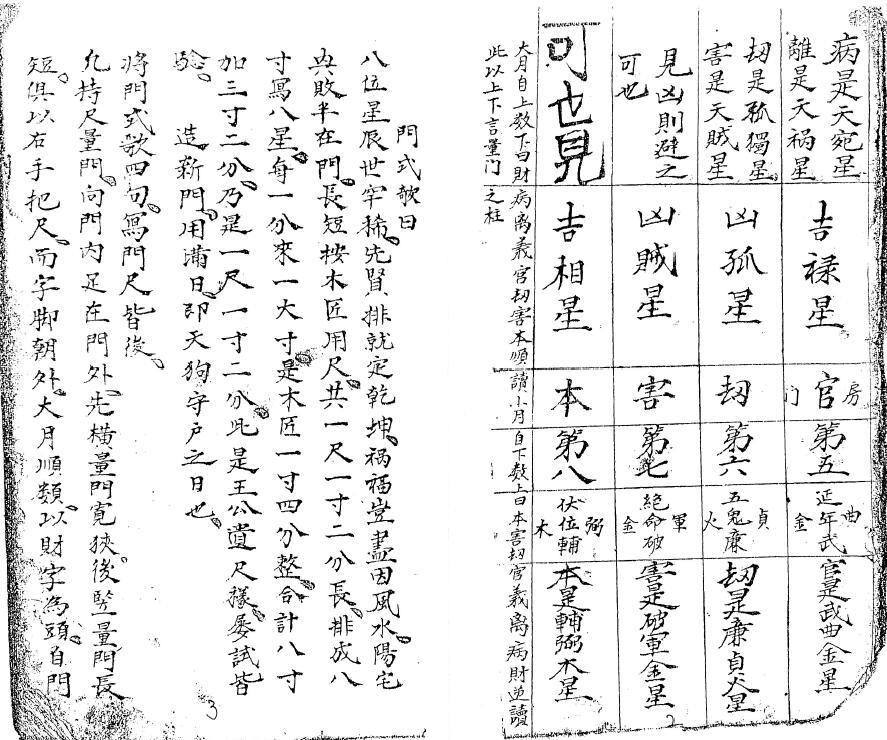 病是天宛星
離是天祸星
吉禄星
房官门
第五
延年武曲金
官是武曲金星
刧是孤獨星
害是天賊星
凶孤星
刧
第六
五鬼廉貞火
刧是廉貞火星
見凶則避之
可也
凶賊星
害
第七
絕命破軍金
害是破軍金星
可也見
吉相星
本
第八
伏位輔弼木
本是輔弼木星
大月自上数下曰財病离義官刧害本順讀小月自下数上曰本害刧官義离病財逆讀
此以上下言量门之柱
2
門式歌曰
八位星辰世罕稀先賢排就定乾坤禍福豈盡因風水陽宅
興敗半在門長短按木匠用尺共一尺一寸二分長排成八
寸寫八星每一分來一大寸是木匠一寸四分整合計八寸
加三寸二分乃是一尺一寸二分此是王公遺尺樣屡試皆
驗 造新門用滿日即天狗守户之日也
將門式歌四句寫門尺皆後
凢持尺量門向門内足在門外先橫量門寬狹後竪量門長
短俱以右手把尺而字脚朝外大月順類以財字為頭自門
3